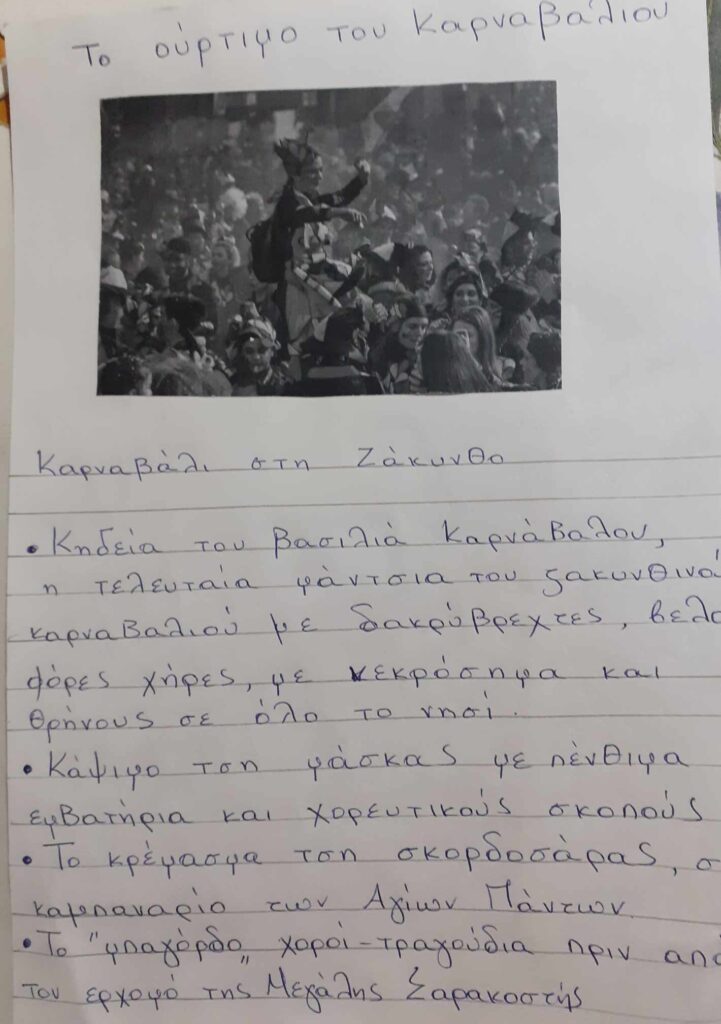 Το ούρτιμο του Καρναβάλιου
Καρναβάλι στη Ζάκυνθο
• Κηδεία του βασιλιά Καρνάβαλου,
η τελευταία μάντσια του ζακυνθινο
καρναβαλιού με δακρύβρεχτες, βελο
φόρες χήρες, με νεκρόσημα και
θρήνους σε όλο το νησί.
• Κάψιμο τση μάσκας με πένθιμα
εμβατήρια και χορευτικούς σκοπούς
• Το κρέμασμα τση σκορδοσάρας, σ
καμπαναριο των Αγίων Πάντων.
• Το "μπαγόρδο" χοροί-τραγούδια πριν από
τον ερχομό της Μεγάλης Σαρακοστής